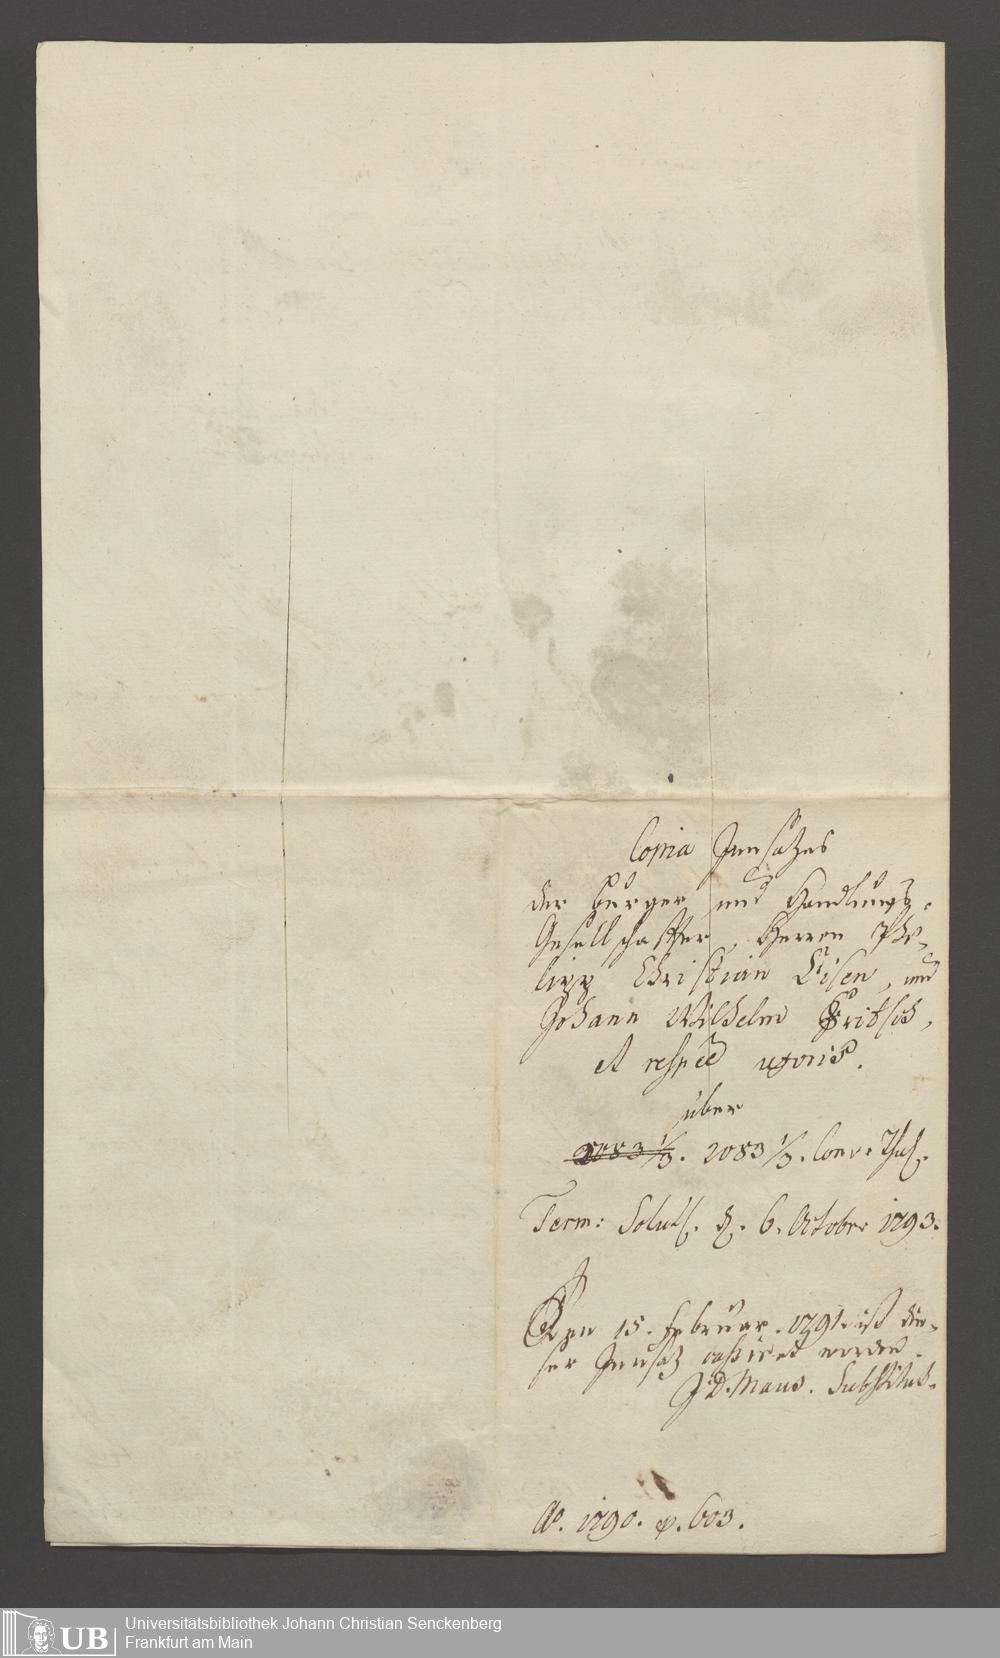 Copia Innsatzes
der Burger und Handlungs-
Gesellschaffter, Herren Phi-
lipp Christian Eisen, und
Johann Wilhelm Fritsch,
et respec uxoris.
über
2083 1/3. 2083 1/3. Conv. Thlr.
Term: Solut. d. 6. October 1793.
Den 15. Februar. 1791. ist die-
ser Innsatz cassiret worden.
J. D. Maus. Substitut.
Ao. 1790. p. 603.
UB
Universitätsbibliothek Johann Christian Senckenberg
Frankfurt am Main